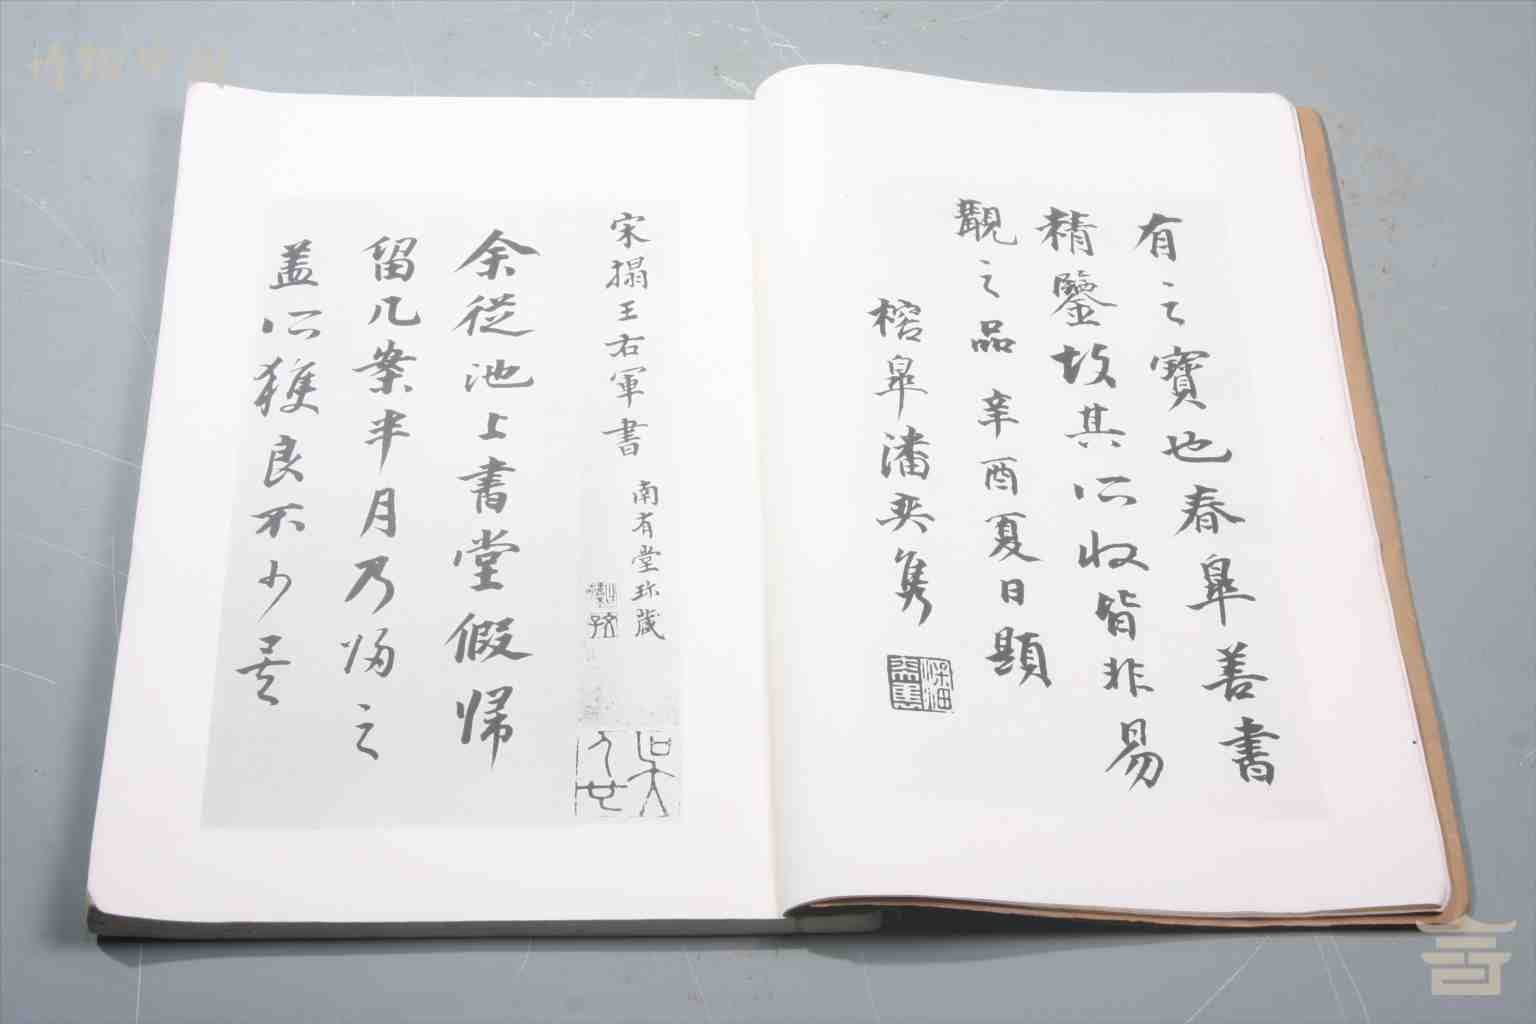 有之寶也春皐善書
精鑒故其所收皆非易
觀之品 辛酉夏日題
榕皐潘奕雋
宋搨王右軍書
南有堂珍藏
余從池上書堂假歸
留几案半月乃歸之
蓋所獲良不少矣